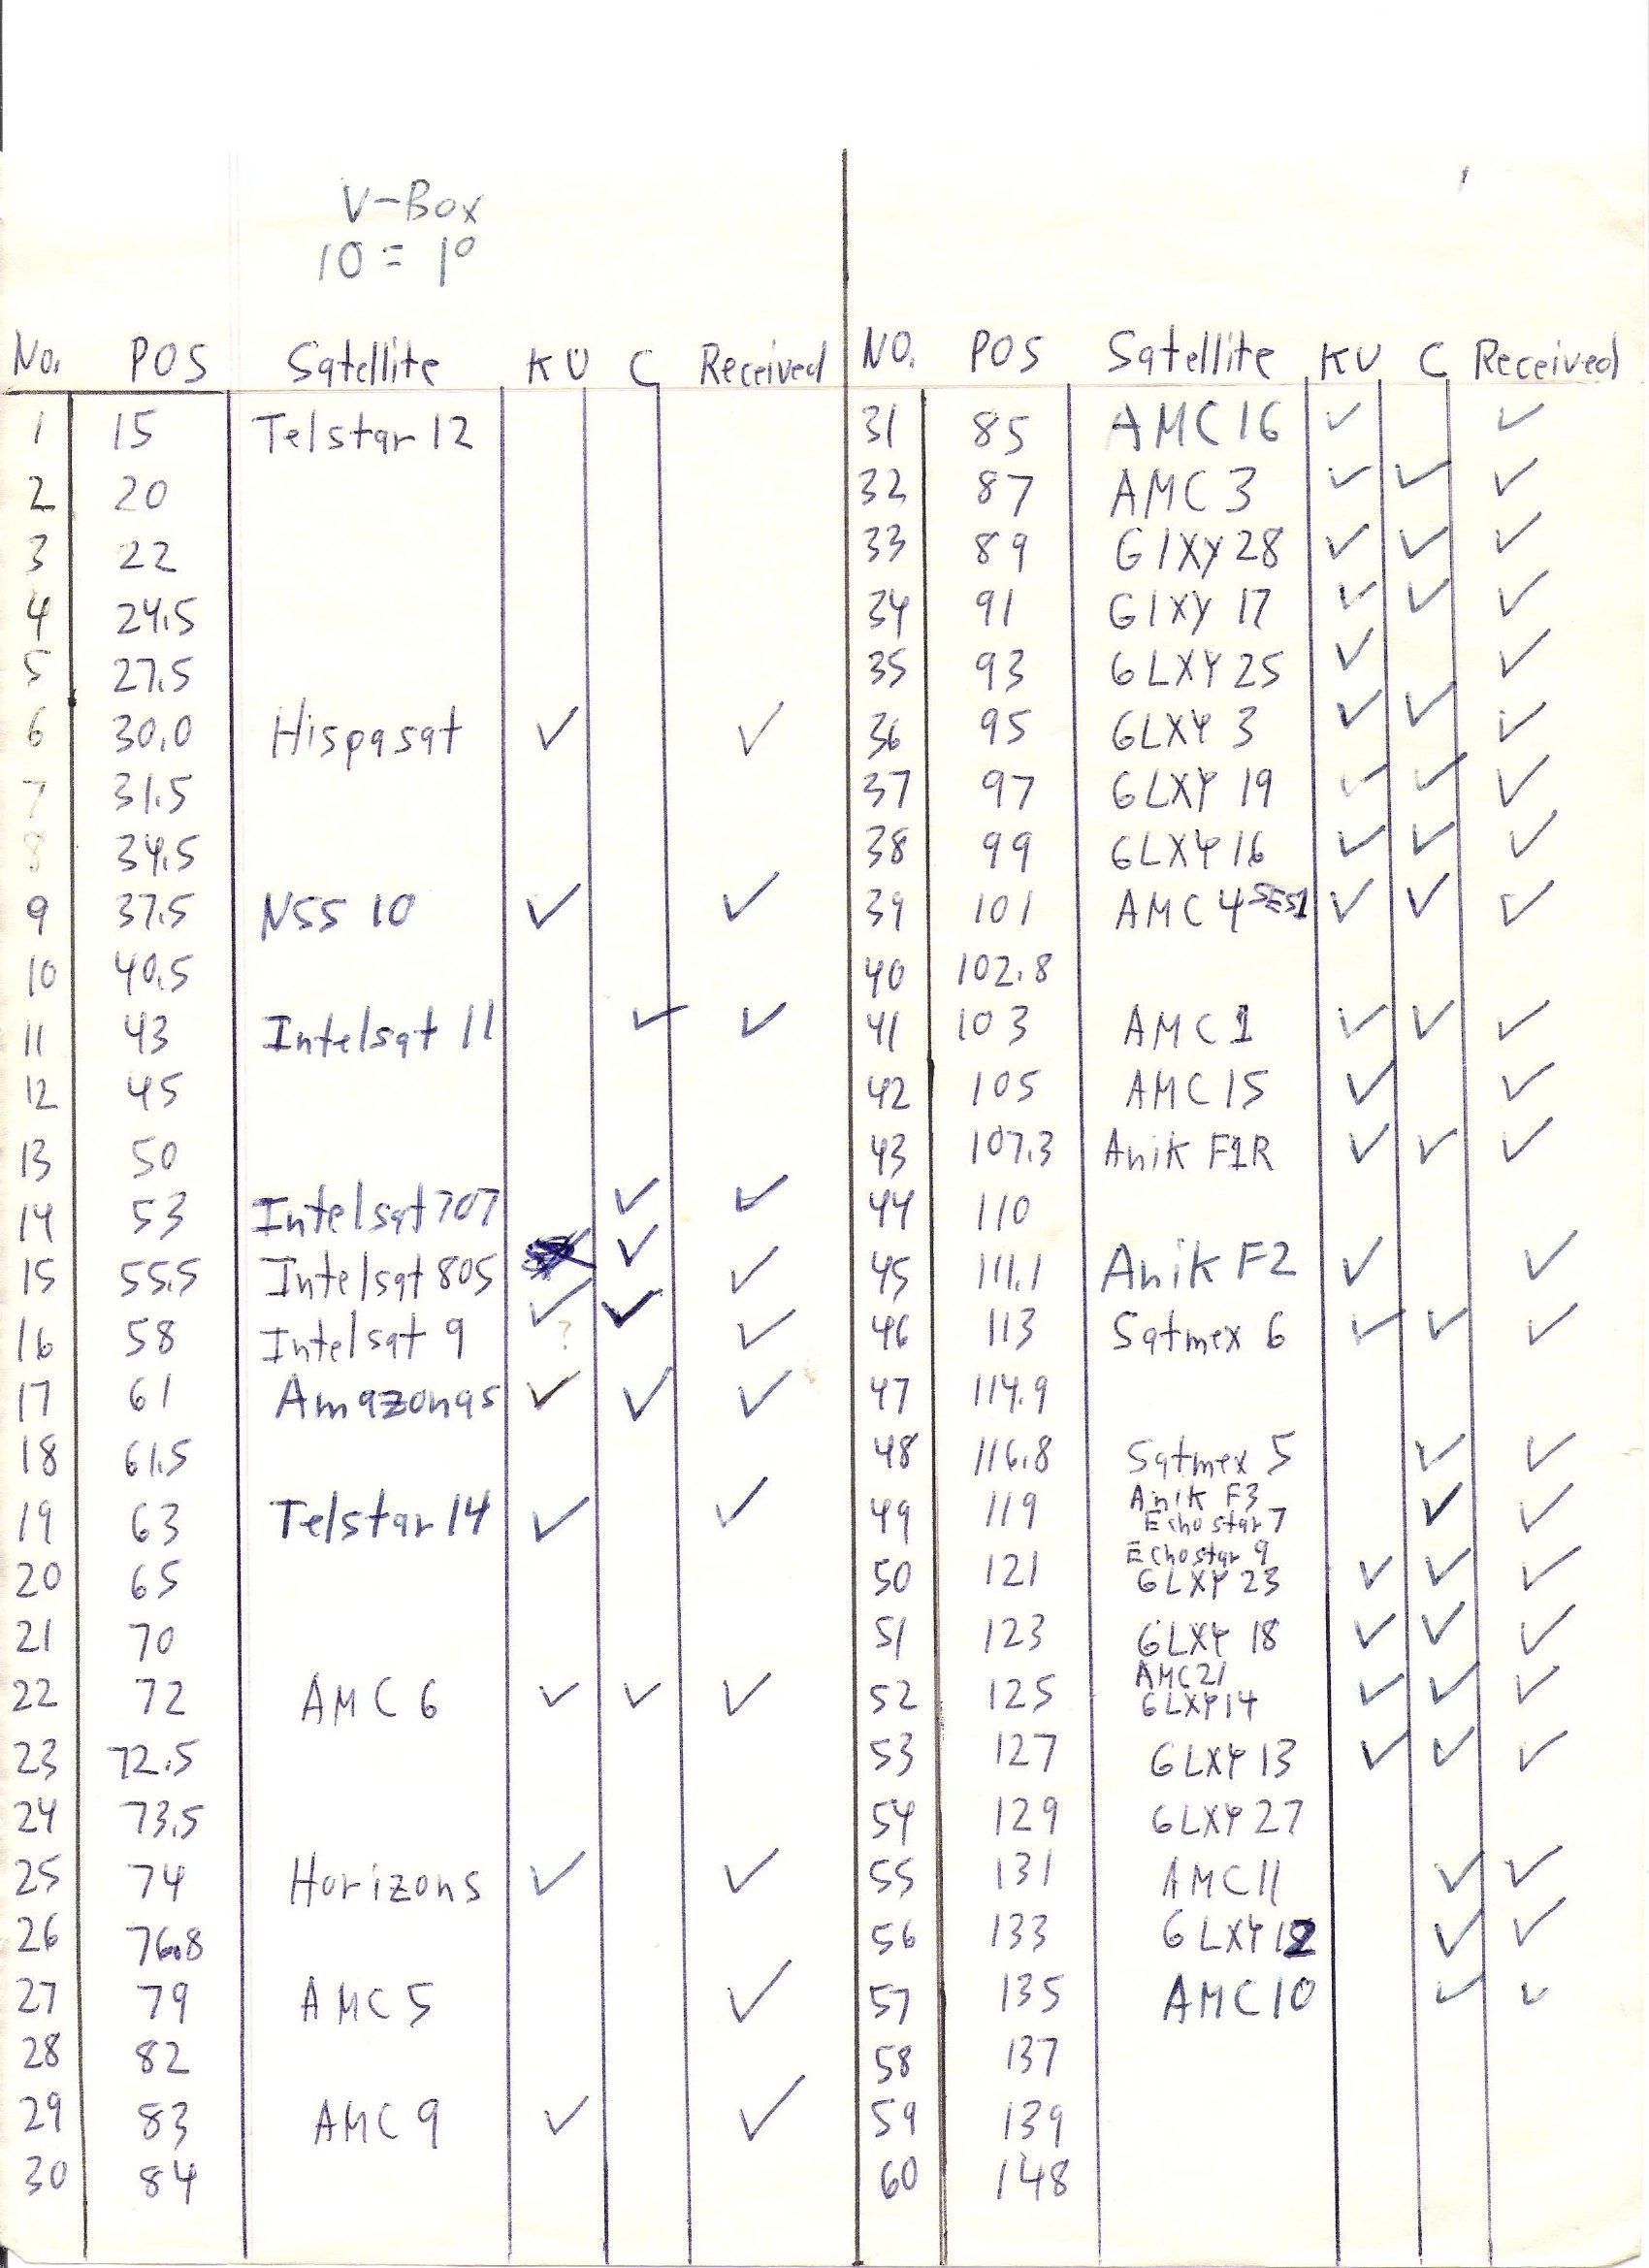 V-Box
10 = 1°
No. POS Satellite KU C Received
1 15 Telstar 12
2 20
3 22
4 24.5
5 27.5
6 30.0 Hispasat ✓ ✓
7 31.5
8 34.5
9 37.5 NSS 10 ✓ ✓
10 40.5
11 43 Intelsat 11 ✓ ✓
12 45
13 50
14 53 Intelsat 707 ✓ ✓
15 55.5 Intelsat 805 ✓ ✓
16 58 Intelsat 9 ✓ ? ✓ ✓
17 61 Amazonas ✓ ✓ ✓
18 61.5
19 63 Telstar 14 ✓ ✓
20 65
21 70
22 72 AMC 6 ✓ ✓ ✓
23 72.5
24 73.5
25 74 Horizons ✓ ✓
26 76.8
27 79 AMC 5 ✓
28 82
29 83 AMC 9 ✓ ✓
30 84
NO. POS Satellite KU C Received
31 85 AMC 16 ✓ ✓
32 87 AMC 3 ✓ ✓ ✓
33 89 GlXy 28 ✓ ✓ ✓
34 91 GlXy 17 ✓ ✓ ✓
35 93 GLXY 25 ✓ ✓
36 95 GLXY 3 ✓ ✓ ✓
37 97 GLXY 19 ✓ ✓ ✓
38 99 GLXY 16 ✓ ✓ ✓
39 101 AMC 4 SES1 ✓ ✓ ✓
40 102.8
41 103 AMC 1 ✓ ✓ ✓
42 105 AMC 15 ✓ ✓
43 107.3 Anik F1R ✓ ✓ ✓
44 110
45 111.1 Anik F2 ✓ ✓
46 113 Satmex 6 ✓ ✓ ✓
47 114.9
48 116.8 Satmex 5 ✓ ✓
49 119 Anik F3 ✓ ✓
Echostar 7
Echostar 9
50 121 GLXY 23 ✓ ✓ ✓
51 123 GLXY 18 ✓ ✓ ✓
AMC 21
52 125 GLXY 14 ✓ ✓ ✓
53 127 GLXY 13 ✓ ✓ ✓
54 129 GLXY 27
55 131 AMC 11 ✓ ✓
56 133 GLXY 12 ✓ ✓
57 135 AMC 10 ✓ ✓
58 137
59 139
60 148